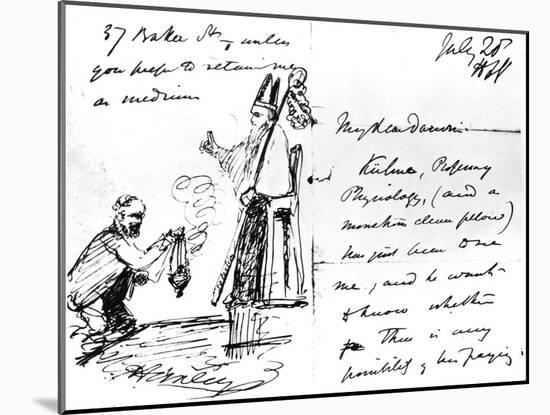 37 Baker St, unless
you prefer to retain me
as medium
July 20
My dear Darwin
Kühne, Professor
Physiology, (and a
monstrous clever fellow)
has just been to see
me, and he wants
to know whether
there is any
possibility of his paying